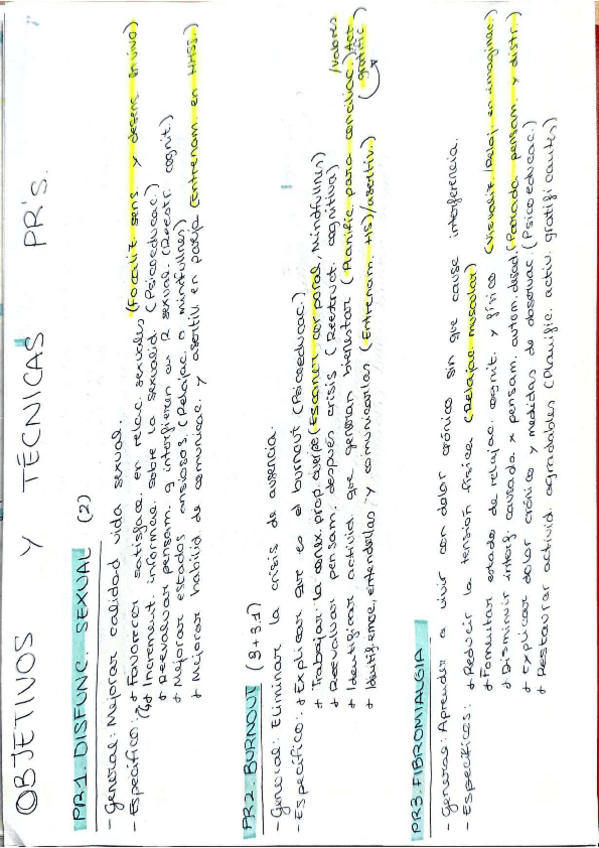 OBJETIVOS Y TÉCNICAS PR'S.
PR1. DISFUNC. SEXUAL (2)
- General: Mejorar calidad vida sexual.
- Específico: + Favorecer satisfacc. en relac. sexuales (Focaliz. sens. y desens. in vivo)
+ Increment. informac. sobre la sexualid. (Psicoeducac.)
+ Reevaluar pensam. q interfieren en R sexual. (Reestr. cognit.)
+ Mejorar estados ansiosos. (Relajac. o mindfullnes)
+ Mejorar habilid de comunicac. y asertiv. en pareja (Entrenam. en HHSS.)
PR2. BURNOUT (9+3.1)
- General: Eliminar la crisis de ausencia.
- Específico: + Explicar que es el burnout (Psicoeducac.)
+ Trabajar la conex. prop. cuerpo (Escaner corporal, Mindfullnes)
+ Reevaluar pensam. después crisis (Reestruct. cognitiva)
+ Identificar activid que generan bienestar (Planific. para conciliac.)/Act. gratific /valores
+ Identif. emoc, entenderlas y comunicarlas (Entrenam. HS)/asertiv.)
PR3. FIBROMIALGIA
- General: Aprender a vivir con dolor crónico sin que cause interferencia.
- Específicos: + Reducir la tensión física (Relajac. muscular)
+ Fomentar estado de relajac. cognit. y físico (Visualiz./Relaj. en imaginac.)
+ Disminuir interf. causada x pensam. autom. desad. (Parada pensam. y distr.)
+ Explicar dolor crónico y medidas de observac. (Psicoeducac.)
+ Restaurar activid. agradables (Planific. activ. gratificantes)